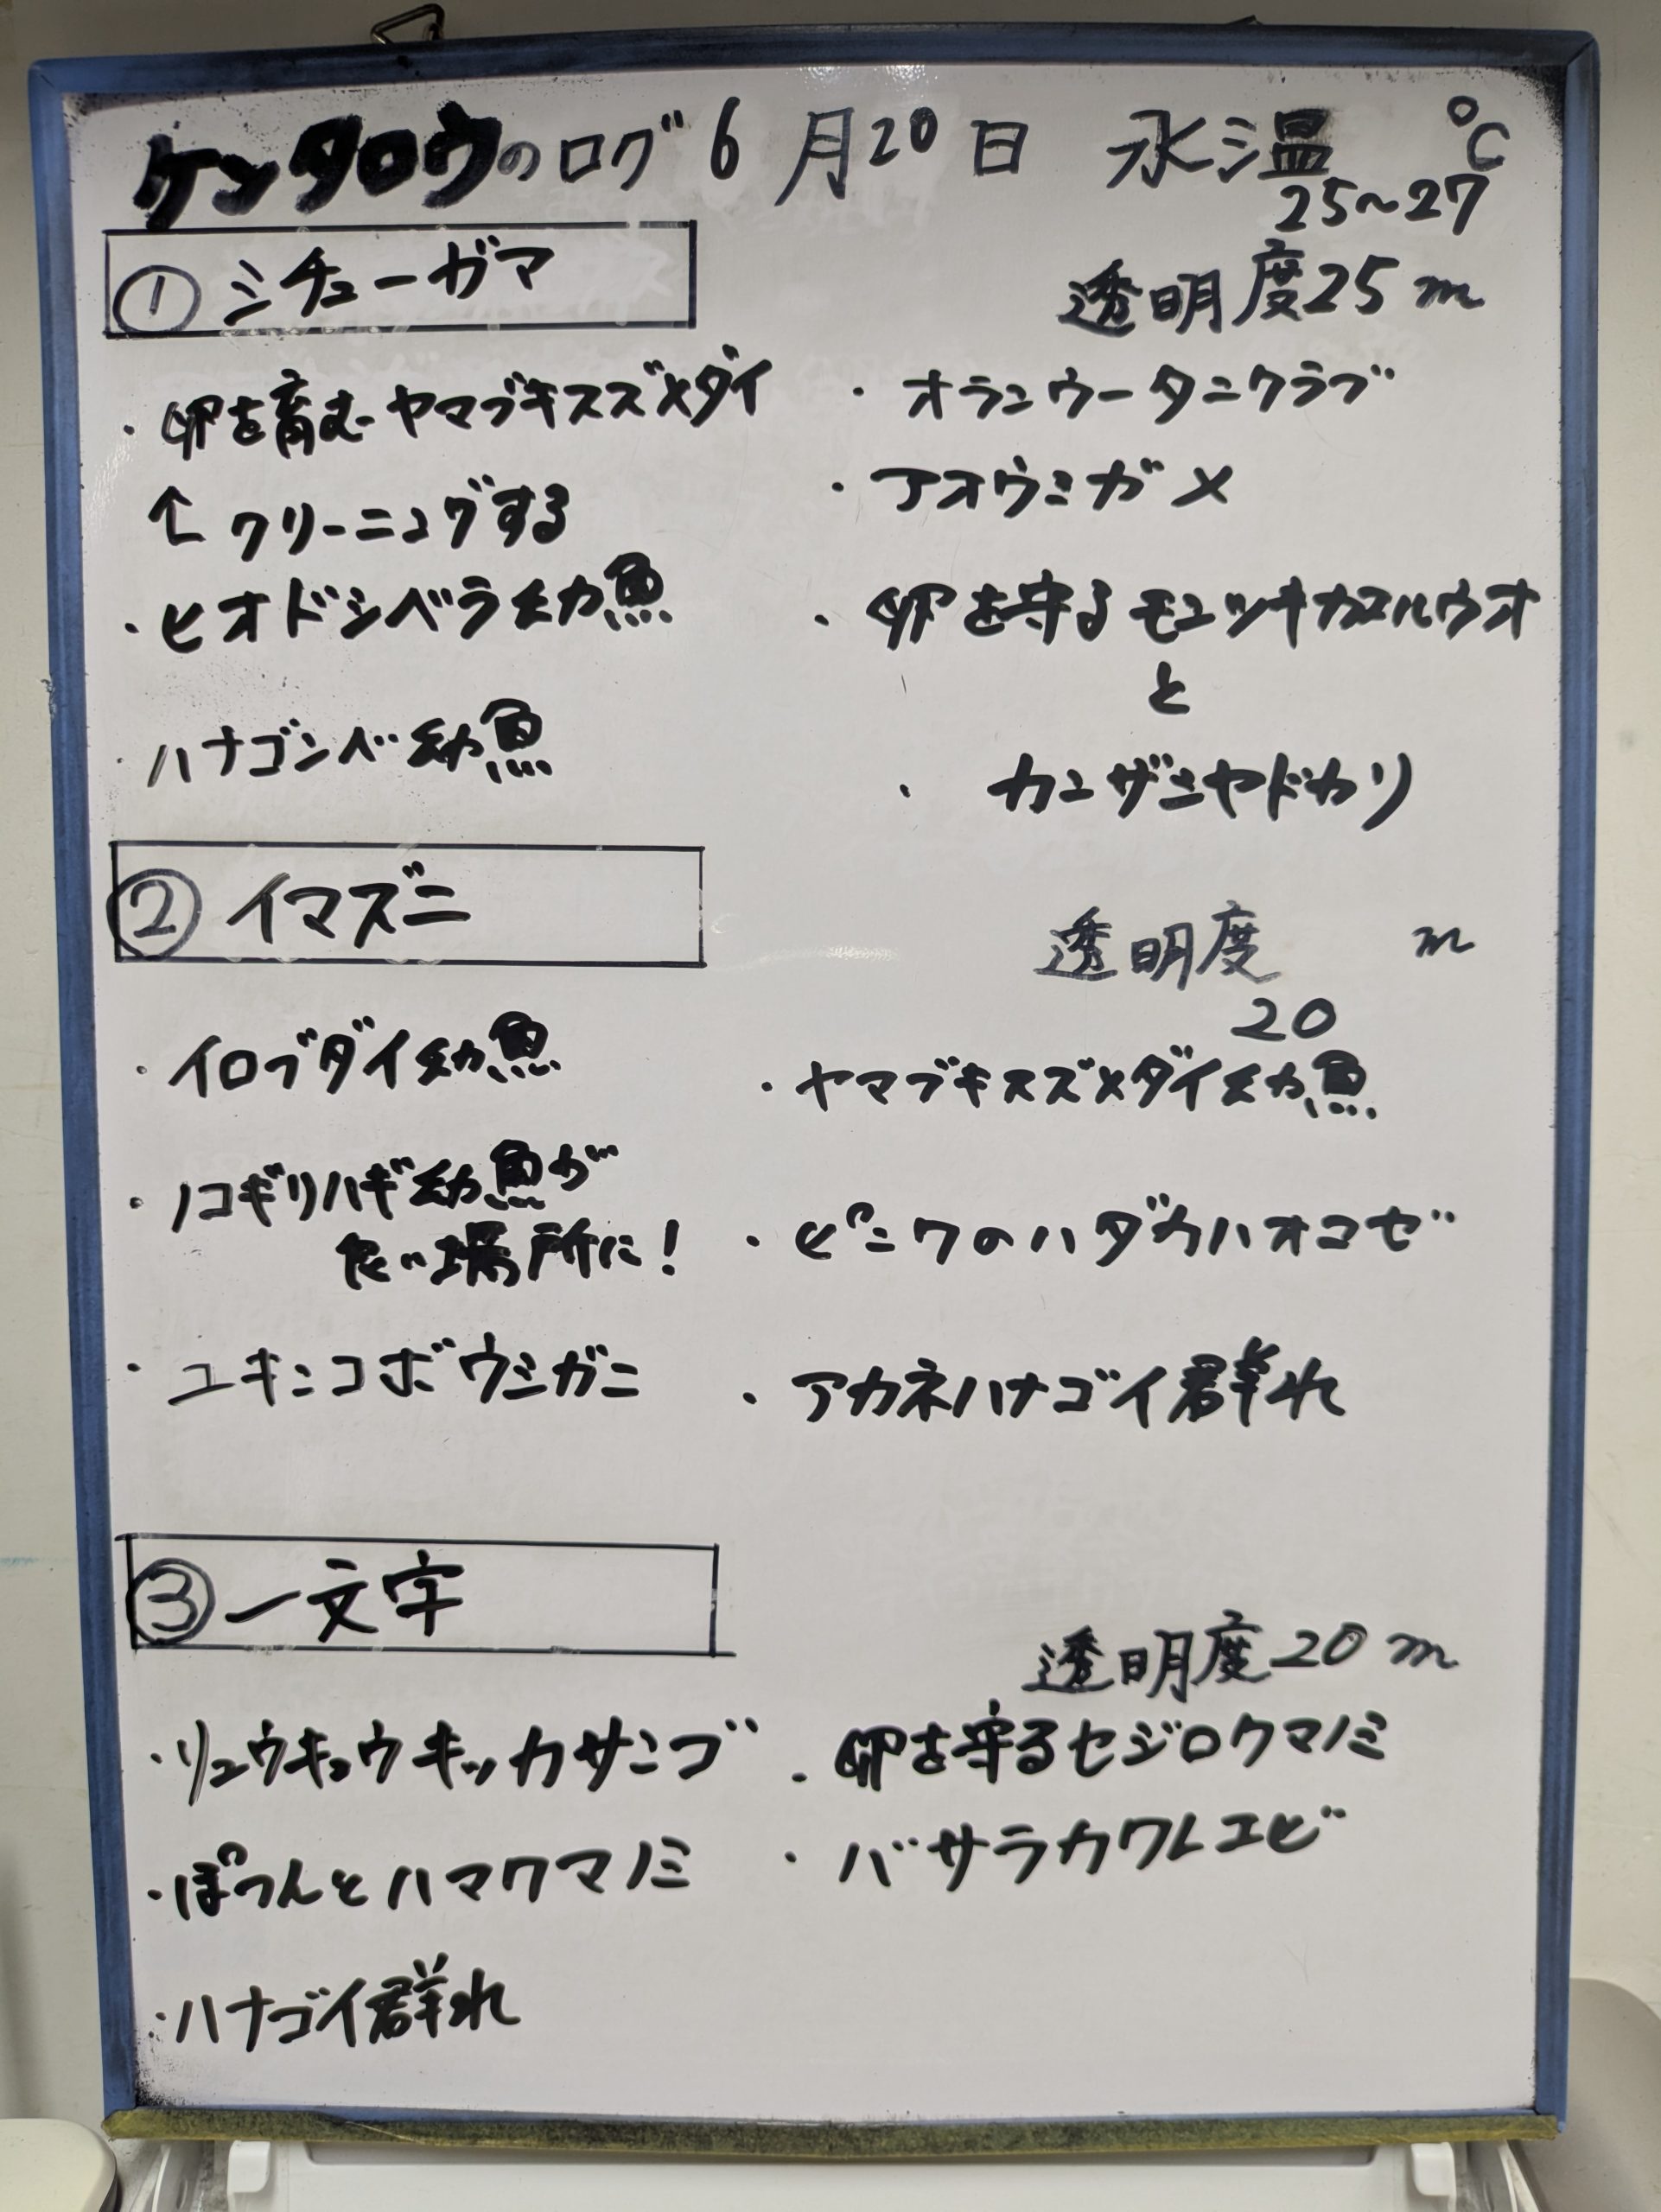 ケンタロウのログ 6月20日 水温 ℃
25~27
① シチューガマ
透明度25m
・卵を育むヤマブキスズメダイ
↑クリーニングする
・ヒオドシベラ幼魚
・ハナゴンベ幼魚
・オランウータンクラブ
・アオウミガメ
・卵を守るモンツキカエルウオ
と
・カンザシヤドカリ
② イマズニ
透明度 m
20
・イロブダイ幼魚
・ノコギリハギ幼魚が
良い場所に!
・ユキンコボウシガニ
・ヤマブキスズメダイ幼魚
・ピンクのハダカハオコゼ
・アカネハナゴイ群れ
③ 一文字
透明度20m
・リュウキュウキッカサンゴ
・ぽつんとハマクマノミ
・ハナゴイ群れ
・卵を守るセジロクマノミ
・バサラカクレエビ